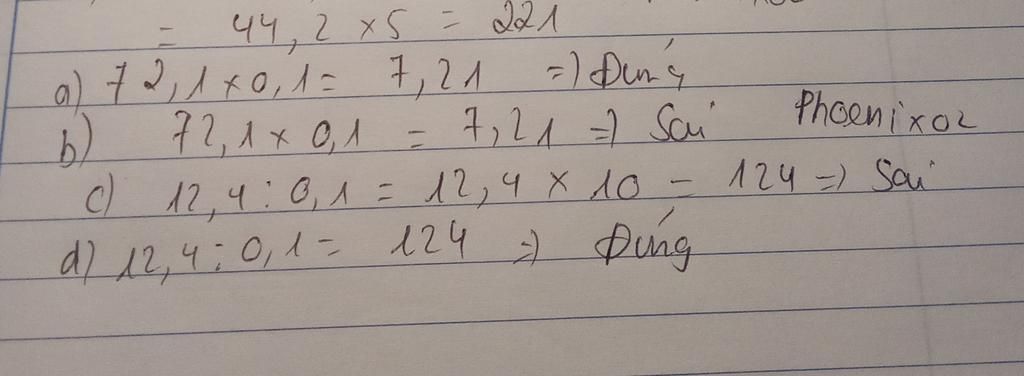 = 44,2 x 5 = 221
a) 72,1 x 0,1 = 7,21 => Đúng
b) 72,1 x 0,1 = 7,21 => Sai Phoenix02
c) 12,4 : 0,1 = 12,4 x 10 = 124 => Sai
d) 12,4 : 0,1 = 124 => Đúng